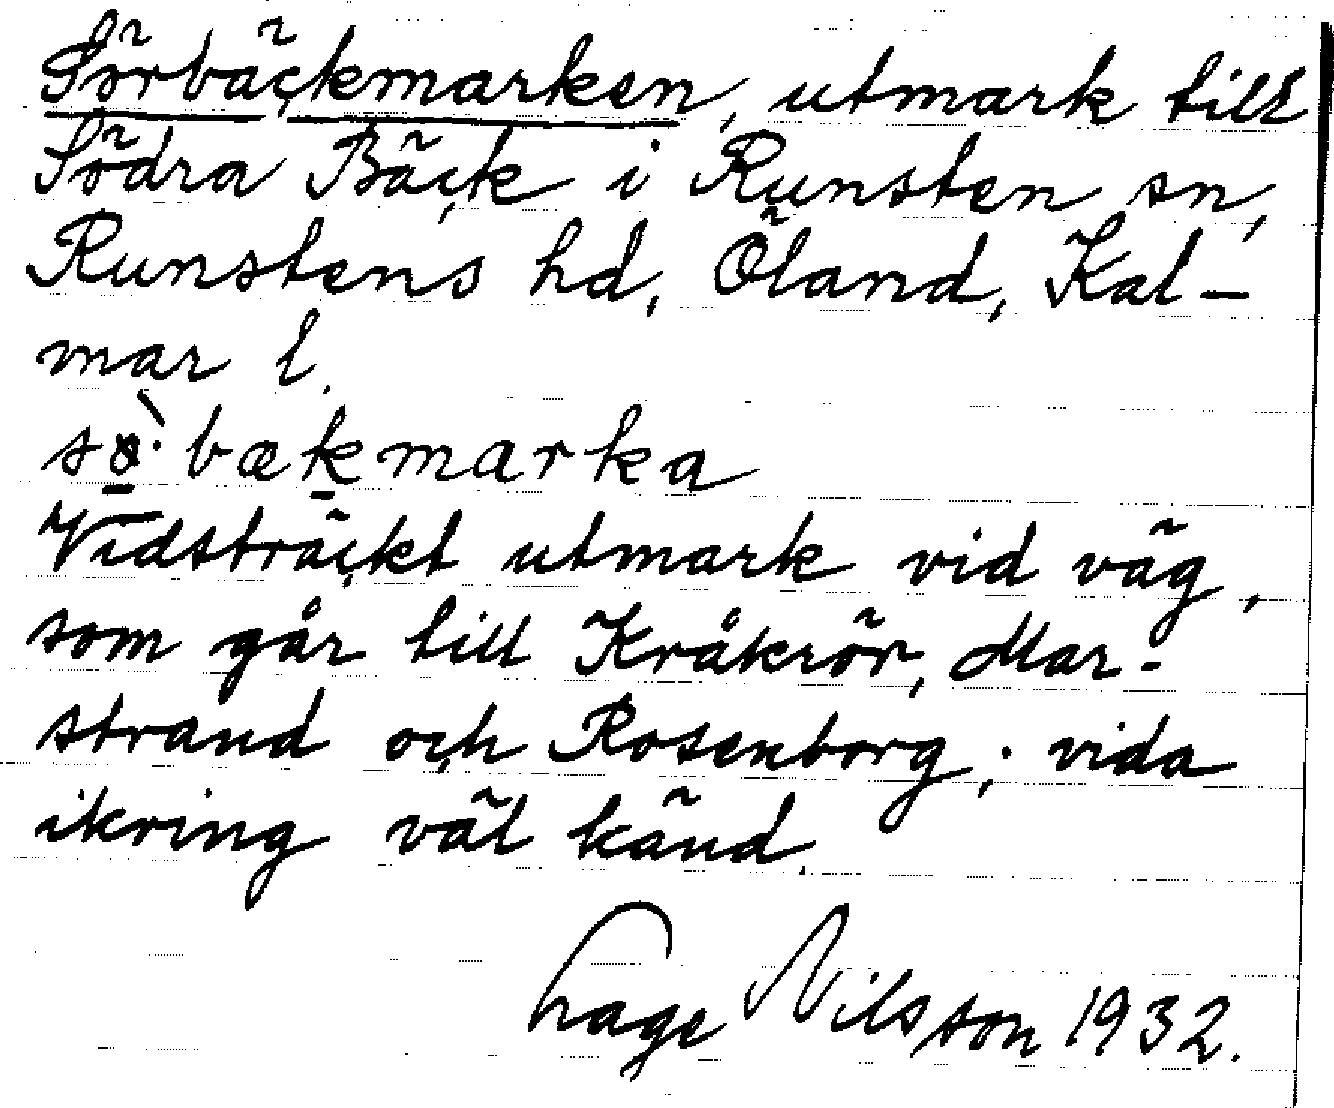 Sörbäckmarken, utmark till
Södra Bäck i Runsten sn,
Runstens hd, Öland, Kal-
mar l.
sö̀·bækmarka
Vidsträckt utmark vid väg,
som går till Kråkrör, Mar-
strand och Rosenborg; vida
ikring väl känd.
Lage Nilsson 1932.